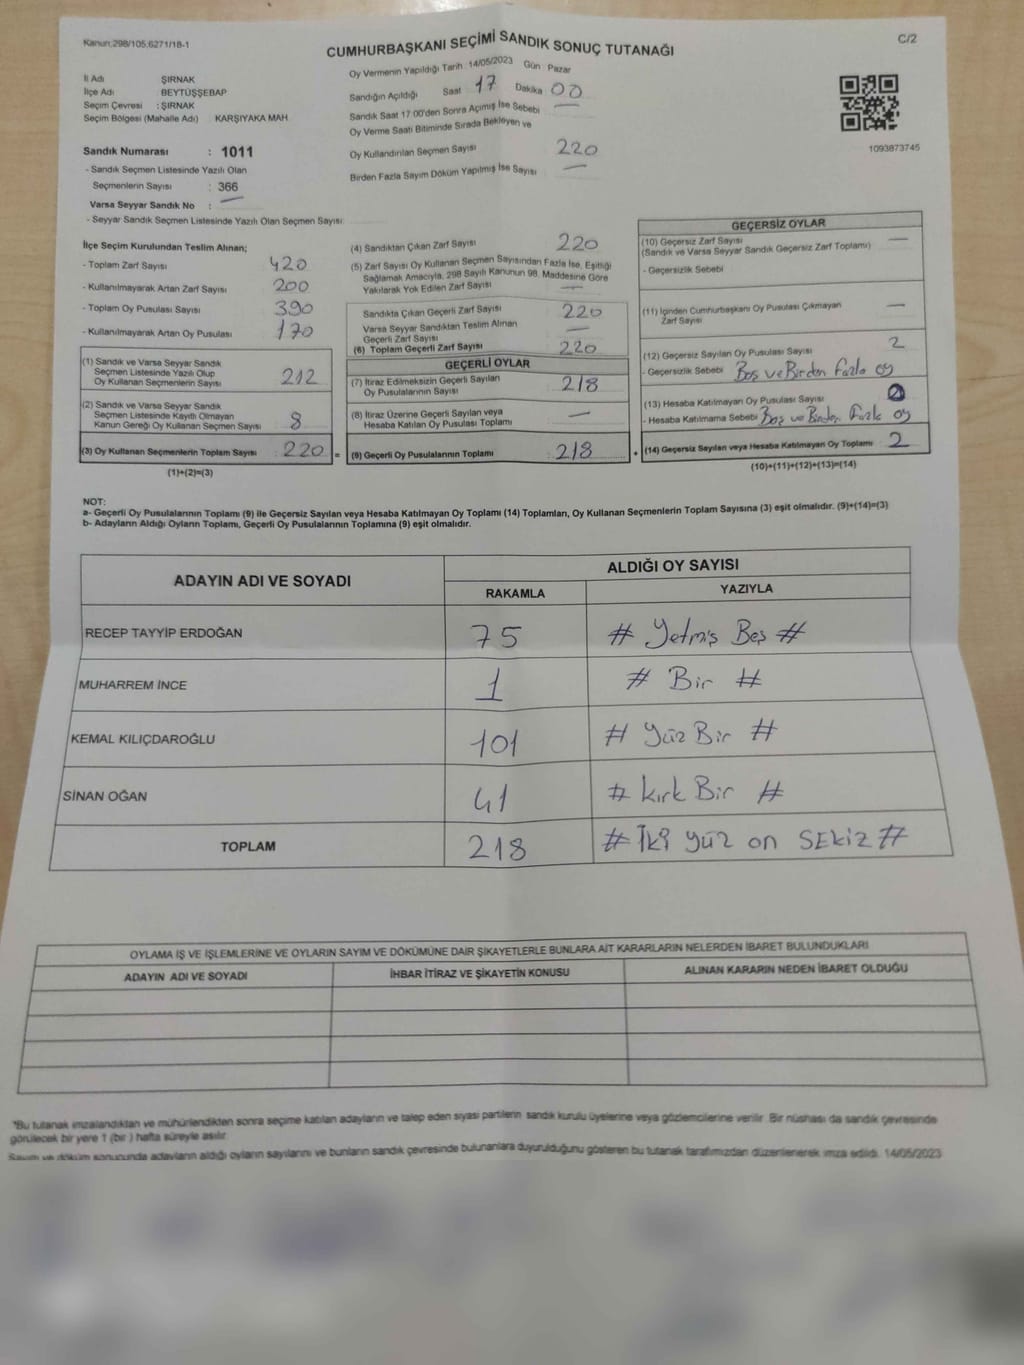 Kanun:298/105,6271/18-1
C/2
CUMHURBAŞKANI SEÇİMİ SANDIK SONUÇ TUTANAĞI
İl Adı ŞIRNAK
İlçe Adı BEYTÜŞŞEBAP
Seçim Çevresi : ŞIRNAK
Seçim Bölgesi (Mahalle Adı) KARŞIYAKA MAH.
Sandık Numarası : 1011
- Sandık Seçmen Listesinde Yazılı Olan
Seçmenlerin Sayısı : 366
Varsa Seyyar Sandık No : —
- Seyyar Sandık Seçmen Listesinde Yazılı Olan Seçmen Sayısı:
Oy Vermenin Yapıldığı Tarih 14/05/2023 Gün Pazar
Sandığın Açıldığı Saat 17 Dakika 00
Sandık Saat 17:00'den Sonra Açımış İse Sebebi —
Oy Verme Saati Bitiminde Sırada Bekleyen ve
Oy Kullandırılan Seçmen Sayısı 220
Birden Fazla Sayım Döküm Yapılmış İse Sayısı —
1093873745
İlçe Seçim Kurulundan Teslim Alınan;
- Toplam Zarf Sayısı 420
- Kullanılmayarak Artan Zarf Sayısı 200
- Toplam Oy Pusulası Sayısı 390
- Kullanılmayarak Artan Oy Pusulası 170
(1) Sandık ve Varsa Seyyar Sandık
Seçmen Listesinde Yazılı Olup
Oy Kullanan Seçmenlerin Sayısı 212
(2) Sandık ve Varsa Seyyar Sandık
Seçmen Listesinde Kayıtlı Olmayan
Kanun Gereği Oy Kullanan Seçmen Sayısı 8
(3) Oy Kullanan Seçmenlerin Toplam Sayısı 220 =
(1)+(2)=(3)
(4) Sandıktan Çıkan Zarf Sayısı 220
(5) Zarf Sayısı Oy Kullanan Seçmen Sayısından Fazla İse, Eşitliği
Sağlamak Amacıyla, 298 Sayılı Kanunun 98. Maddesine Göre
Yakılarak Yok Edilen Zarf Sayısı —
Sandıkta Çıkan Geçerli Zarf Sayısı 220
Varsa Seyyar Sandıktan Teslim Alınan
Geçerli Zarf Sayısı —
(6) Toplam Geçerli Zarf Sayısı 220
GEÇERLİ OYLAR
(7) İtiraz Edilmeksizin Geçerli Sayılan
Oy Pusulasının Sayısı 218
(8) İtiraz Üzerine Geçerli Sayılan veya
Hesaba Katılan Oy Pusulası Toplamı —
(9) Geçerli Oy Pusulalarının Toplamı 218 +
GEÇERSİZ OYLAR
(10) Geçersiz Zarf Sayısı —
(Sandık ve Varsa Seyyar Sandık Geçersiz Zarf Toplamı)
- Geçersizlik Sebebi
(11) İçinden Cumhurbaşkanı Oy Pusulası Çıkmayan —
Zarf Sayısı
(12) Geçersiz Sayılan Oy Pusulası Sayısı 2
- Geçersizlik Sebebi Boş ve Birden Fazla oy
(13) Hesaba Katılmayan Oy Pusulası Sayısı
- Hesaba Katılmama Sebebi Boş ve Birden Fazla oy
(14) Geçersiz Sayılan veya Hesaba Katılmayan Oy Toplamı 2
(10)+(11)+(12)+(13)=(14)
NOT:
a- Geçerli Oy Pusulalarının Toplamı (9) ile Geçersiz Sayılan veya Hesaba Katılmayan Oy Toplamı (14) Toplamları, Oy Kullanan Seçmenlerin Toplam Sayısına (3) eşit olmalıdır. (9)+(14)=(3)
b- Adayların Aldığı Oyların Toplamı, Geçerli Oy Pusulalarının Toplamına (9) eşit olmalıdır.
ADAYIN ADI VE SOYADI ALDIĞI OY SAYISI
RAKAMLA YAZIYLA
RECEP TAYYİP ERDOĞAN 75 # Yetmiş Beş #
MUHARREM İNCE 1 # Bir #
KEMAL KILIÇDAROĞLU 101 # Yüz Bir #
SİNAN OĞAN 41 # Kırk Bir #
TOPLAM 218 # İki yüz on SEKİZ #
OYLAMA İŞ VE İŞLEMLERİNE VE OYLARIN SAYIM VE DÖKÜMÜNE DAİR ŞİKAYETLERLE BUNLARA AİT KARARLARIN NELERDEN İBARET BULUNDUKLARI
ADAYIN ADI VE SOYADI İHBAR İTİRAZ VE ŞİKAYETİN KONUSU ALINAN KARARIN NEDEN İBARET OLDUĞU
*Bu tutanak imzalandıktan ve mühürlendikten sonra seçime katılan adayların ve talep eden siyasi partilerin sandık kurulu üyelerine veya gözlemcilerine verilir. Bir nüshası da sandık çevresinde
görülecek bir yere 1 (bir ) hafta süreyle asılır.
Sayım ve döküm sonucunda adayların aldığı oyların sayılarını ve bunların sandık çevresinde bulunanlara duyurulduğunu gösteren bu tutanak tarafımızdan düzenlenerek imza edildi. 14/05/2023